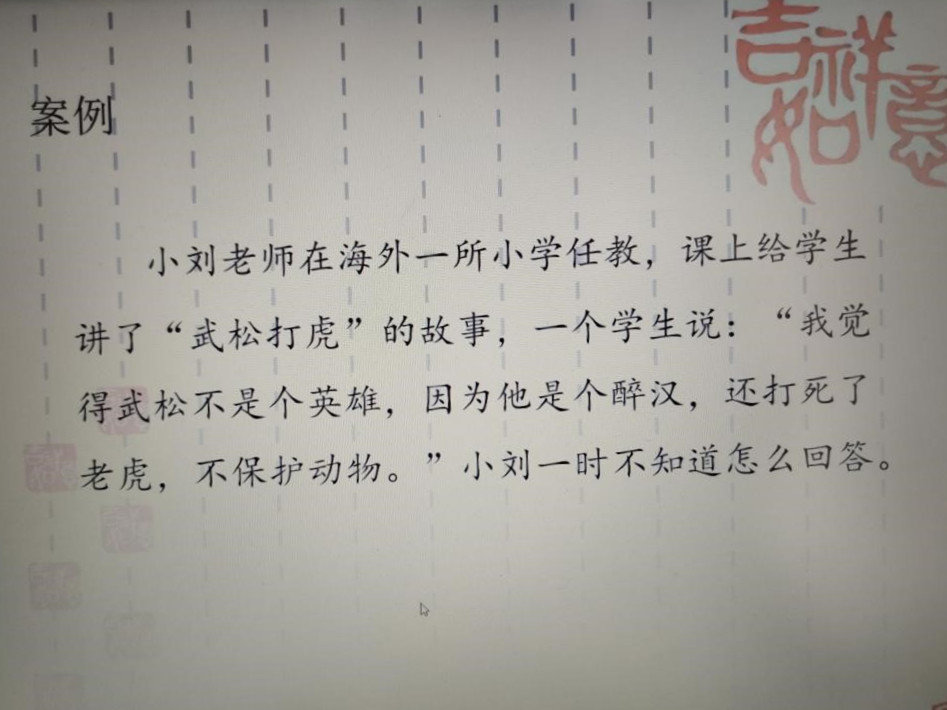 吉祥如意
案例
小刘老师在海外一所小学任教，课上给学生
讲了“武松打虎”的故事，一个学生说：“我觉
得武松不是个英雄，因为他是个醉汉，还打死了
老虎，不保护动物。”小刘一时不知道怎么回答。